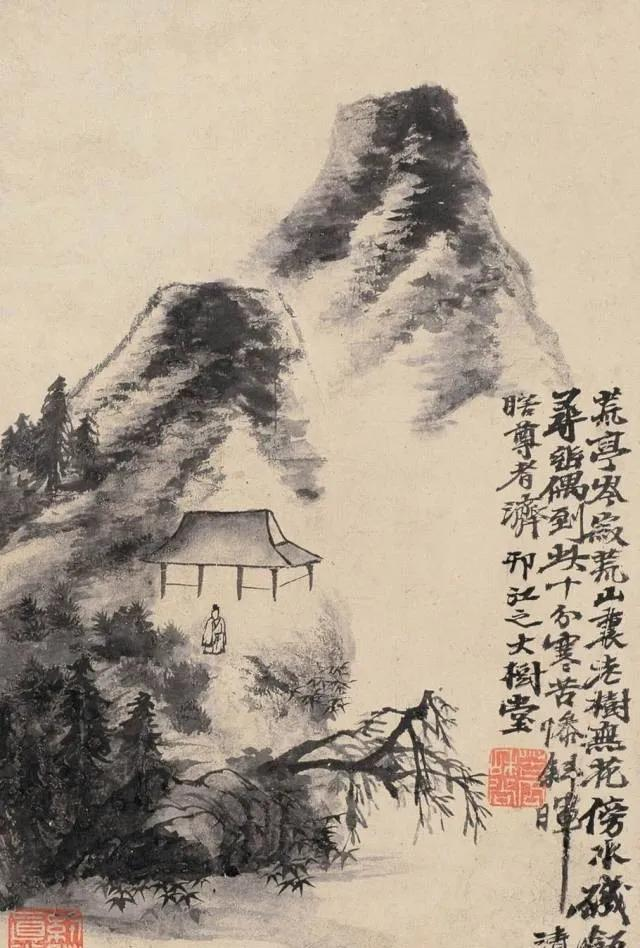 荒亭岑寂荒山裏老樹無花傍水磯
尋詩偶到此十分寒苦慘斜暉清
瞎尊者濟 邗江之大樹堂